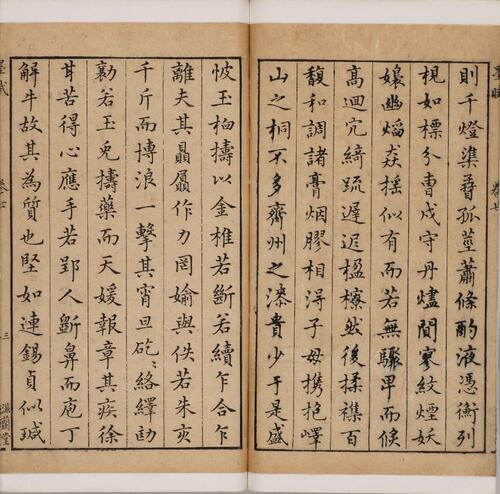 墨賦 卷七
則千燈孤莖蕭條酌液憑衡列
梘如標分曹戍守丹燼間寥紋煙妖
孃幽焰焱搖似有而若無驟卑而倏
高迴冗綺疏遲楹然後揉襍百
馥和調諸膏烟膠相得子母携抱嶧
山之桐不多齊州之漆貴少于是盛
玉柏擣以金椎若斷若續乍合乍
離夫其贔屭作力罔媮與佚若朱亥
千斤而搏浪一擊其宵旦矻〻絡繹劻
勷若玉兔擣藥而天媛報章其疾徐
甘苦得心應手若郢人斲鼻而庖丁
解牛故其為質也堅如連錫貞似瑊
墨賦 卷七 三 滋蘭堂